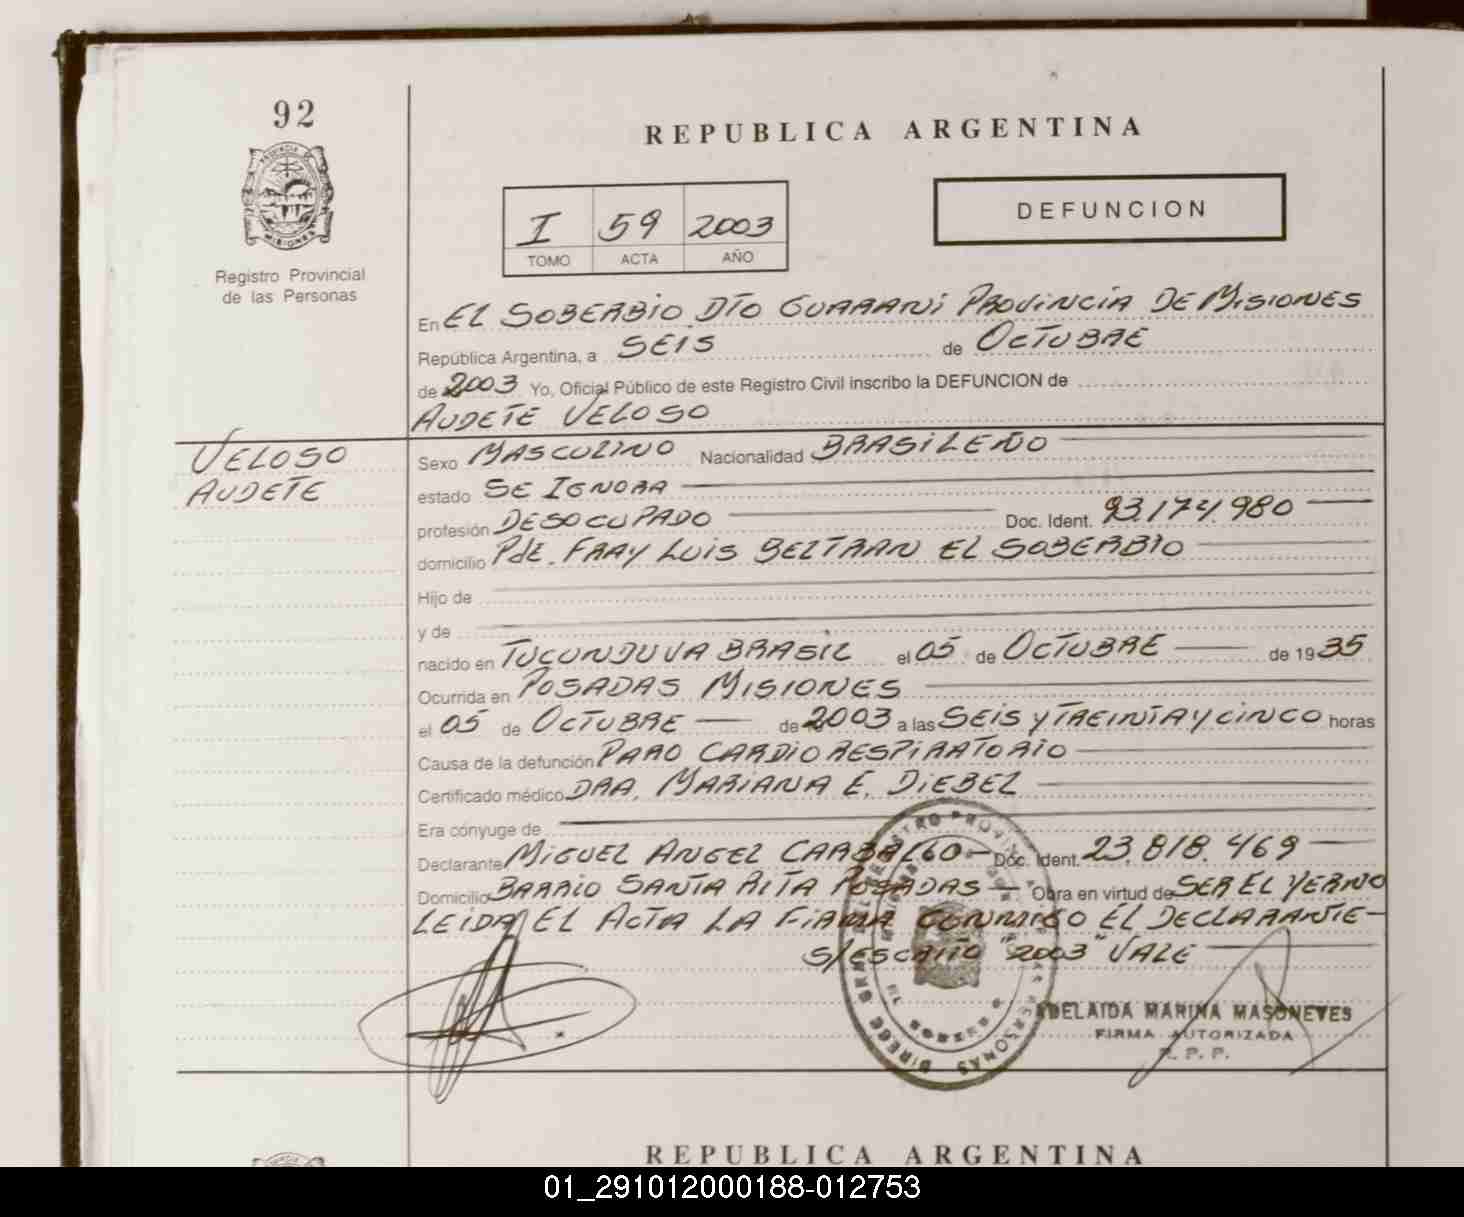 92
REPUBLICA ARGENTINA
PROVINCIA DE
MISIONES
I 59 2003
TOMO ACTA AÑO
DEFUNCION
Registro Provincial
de las Personas
En EL SOBERBIO DTO GUARANI PROVINCIA DE MISIONES
República Argentina, a SEIS de OCTUBRE
de 2003 Yo, Oficial Público de este Registro Civil inscribo la DEFUNCION de
AUDETE VELOSO
VELOSO
AUDETE
Sexo MASCULINO Nacionalidad BRASILEÑO
estado SE IGNORA
profesión DESOCUPADO Doc. Ident. 93.174.980
domicilio Pde. FRAY LUIS BELTRAN EL SOBERBIO
Hijo de
y de
nacido en TUCUNDUVA BRASIL el 05 de OCTUBRE de 1935
Ocurrida en POSADAS MISIONES
el 05 de OCTUBRE de 2003 a las SEIS Y TREINTA Y CINCO horas
Causa de la defunción PARO CARDIO RESPIRATORIO
Certificado médico DRA. MARIANA E. DIEBEL
Era cónyuge de
Declarante MIGUEL ANGEL CARBALLO Doc. Ident. 23.818.469
Domicilio BARRIO SANTA RITA POSADAS Obra en virtud de SER EL YERNO
LEIDA EL ACTA LA FIRMA CONMIGO EL DECLARANTE-
S/ESCRITO "2003" VALE
ADELAIDA MARINA MASONEVES
FIRMA AUTORIZADA
R. P. P.
REPUBLICA ARGENTINA
01_291012000188-012753